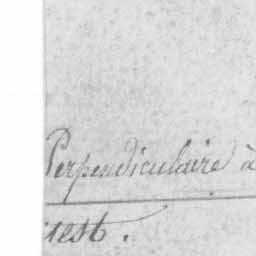 Perpendiculaire à
est.